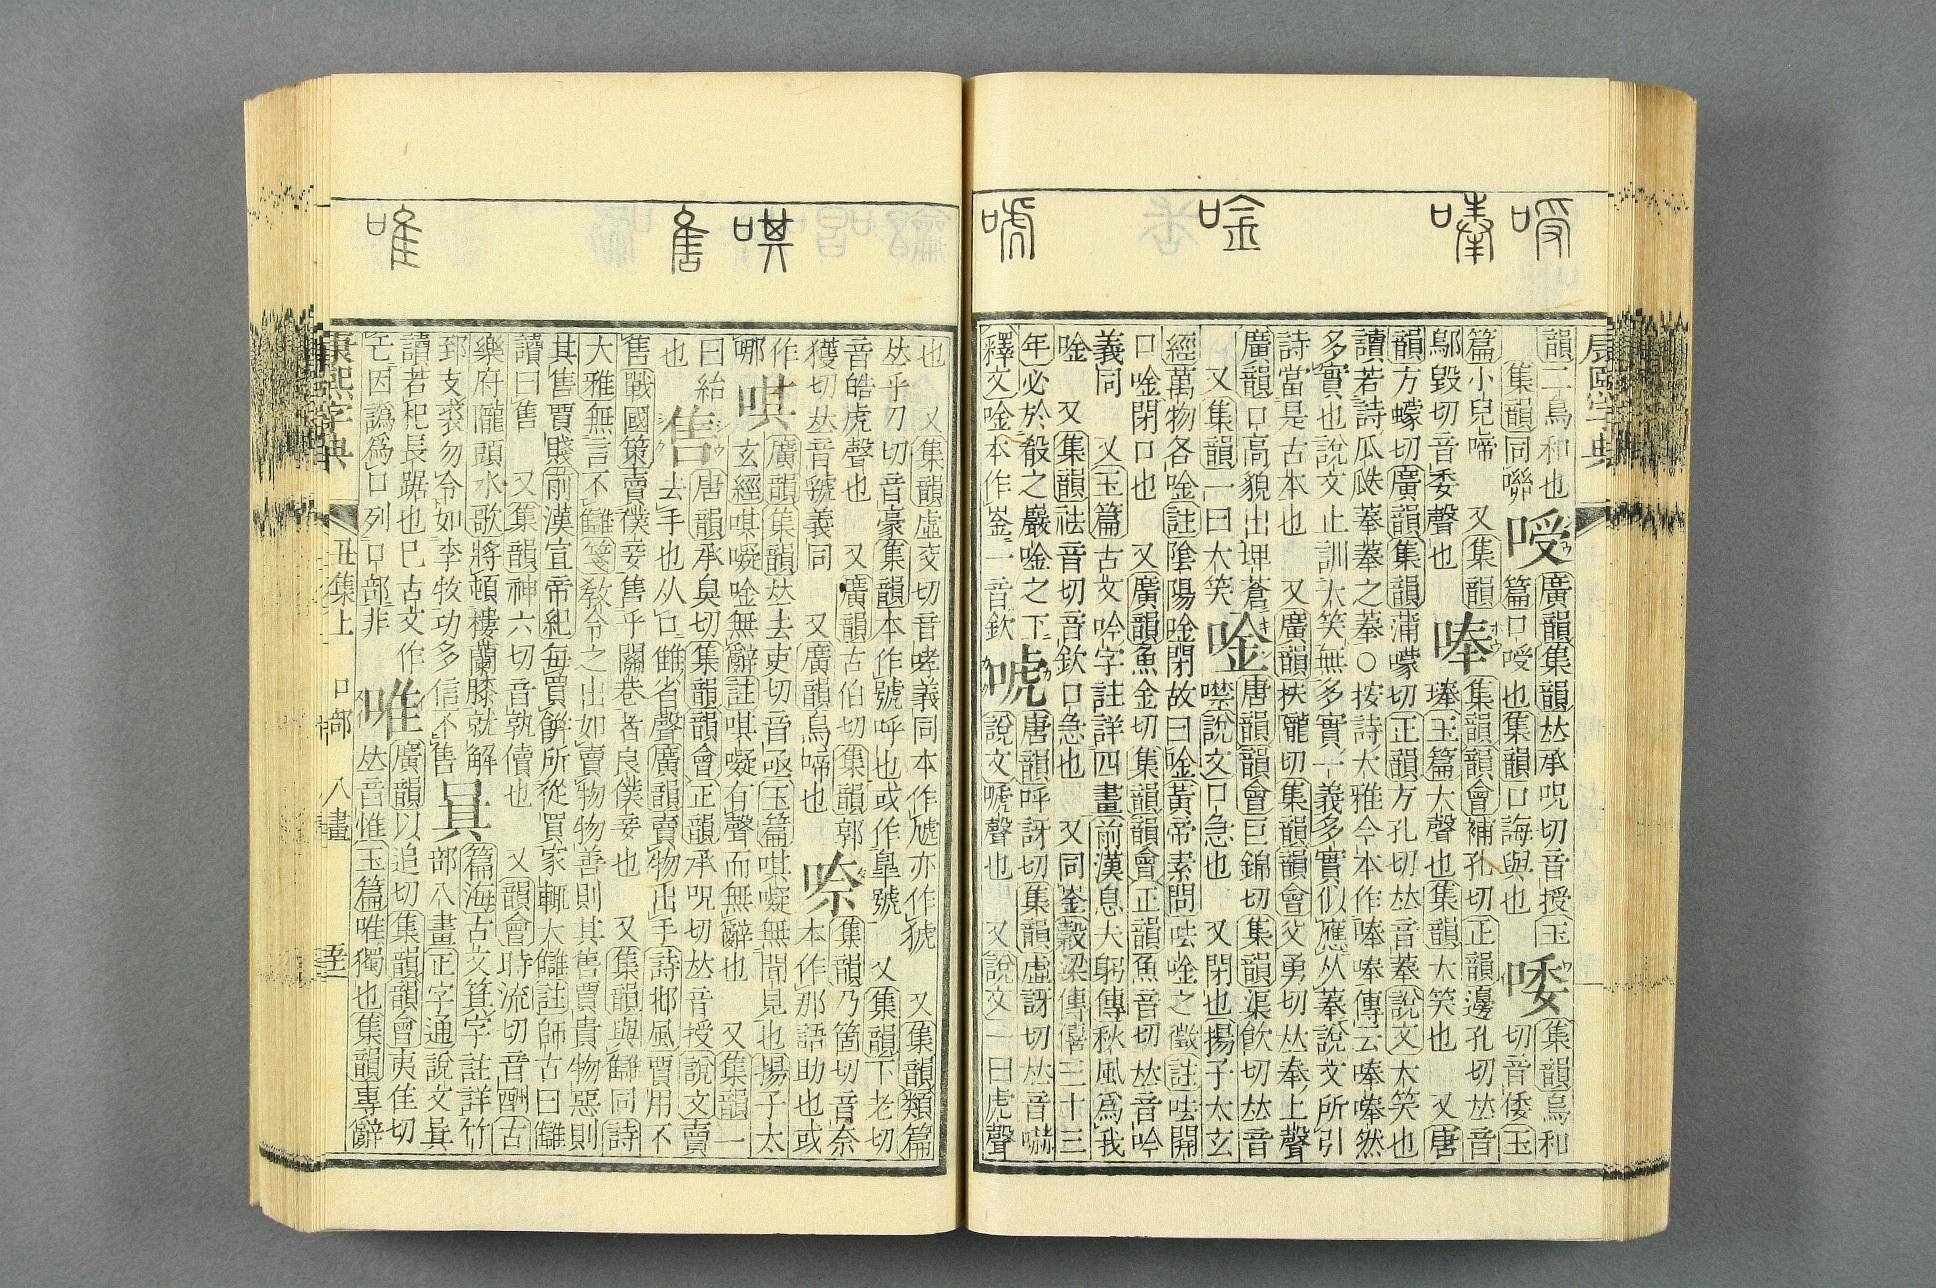 康熙字典
㖟 唪 唫 唬
韻二鳥和也
集韻同嘢
㖟
廣韻集韻𠀤承呪切音授玉
篇口㖟也集韻口誨與也
唩
集韻烏和
切音倭玉
篇小兒啼 又集韻
鄔毀切音委聲也
唪
集韻韻會補孔切正韻邊孔切𠀤音
琫玉篇大聲也集韻大笑也 又唐
韻方蠓切廣韻集韻蒲蠓切正韻方孔切𠀤音菶說文大笑也
讀若詩瓜瓞菶菶之菶○按詩大雅今本作唪唪傳云唪唪然
多實也說文止訓大笑無多實一義多實似應从菶說文所引
詩當是古本也 又廣韻扶隴切集韻韻會父勇切𠀤奉上聲
廣韻口高貌出埤蒼
又集韻一曰大笑
唫
唐韻韻會巨錦切集韻渠飮切𠀤音
噤說文口急也 又閉也揚子太玄
經萬物各唫註陰陽唫閉故曰唫黃帝素問呿唫之徵註呿開
口唫閉口也 又廣韻魚金切集韻韻會正韻魚音切𠀤音吟
義同 又玉篇古文吟字註詳四畫前漢息夫躬傳秋風爲我
唫 又集韻祛音切音欽口急也 又同崟穀梁傳僖三十三
年必於殽之巖唫之下
釋文唫本作崟一音欽
唬
唐韻呼訝切集韻虛訝切𠀤音嚇
說文嗁聲也 又說文一曰虎聲
唭 售 唯
也 又集韻虛交切音哮義同本作虓亦作猇 又集韻類篇
𠀤乎刀切音豪集韻本作號呼也或作皐號 又集韻下老切
音皓虎聲也 又廣韻古伯切集韻郭
獲切𠀤音虢義同 又廣韻鳥啼也
㖠
集韻乃箇切音奈
本作那語助也或
作
哪
唭
廣韻集韻𠀤去吏切音亟玉篇唭㘈無聞見也揚子太
玄經唭㘈唫無辭註唭㘈有聲而無辭也 又集韻一
曰紿
也
售
唐韻承臭切集韻韻會正韻承呪切𠀤音授說文賣
去手也从口雔省聲廣韻賣物出手詩邶風賈用不
售戰國策賣僕妾售乎閭巷者良僕妾也 又集韻與讎同詩
大雅無言不讎箋敎令之出如賣物物善則其售賈貴物惡則
其售賈賤前漢宣帝紀每買餅所從買家輒大讎註師古曰讎
讀曰售 又集韻神六切音孰儥也 又韻會時流切音酬古
樂府隴頭水歌將頓樓蘭膝就解
郅支裘勿令如李牧功多信不售
篇海古文箕字註詳竹
部八畫正字通說文㠱
讀若杞長踞也巳古文作
因譌爲口列口部非
唯
廣韻以追切集韻韻會夷隹切
𠀤音惟玉篇唯獨也集韻專辭
康熙字典 丑集上 口部 八畫